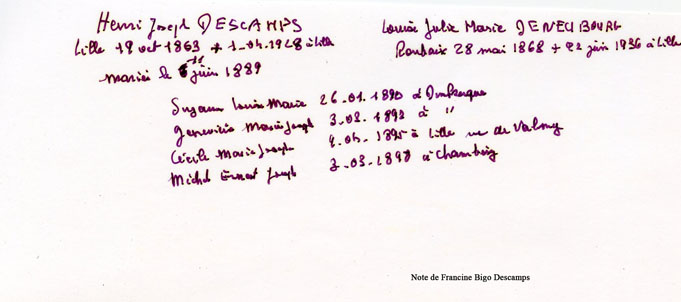 Henri Joseph DESCAMPS
Lille 19 oct 1863 + 1-04.1928 à Lille
Louise Julie Marie DENEUBOURG
Roubaix 28 mai 1868 + 22 juin 1936 à Lille
mariés le juin 1889
Suzanne Louise Marie 26.01.1890 à Dunkerque
Geneviève Marie Joseph 3.02.1892 à "
Cécile Marie Joseph .1895 à Lille rue de Valmy
Michel Ernest Joseph 3.03.1898 à Chambéry
Note de Francine Bigo Descamps